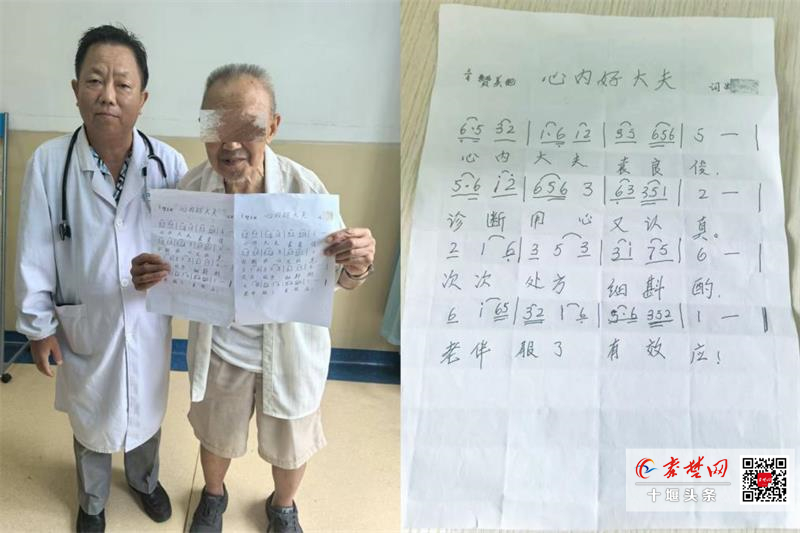 赞美曲 心内好大夫 词曲
6·5 32 | 1·6 12 | 33 656 | 5 — |
心内大夫袁良俊,
5·6 12 | 656 3 | 63 351 | 2 — |
诊断用心又认真。
2 1 6 | 3 5 3 | 31 75 | 6 — |
次次处方细斟酌,
6 1 65 | 32 1 6 | 5·6 352 | 1 — |
老伴服了有效应!
秦楚网
十堰头条